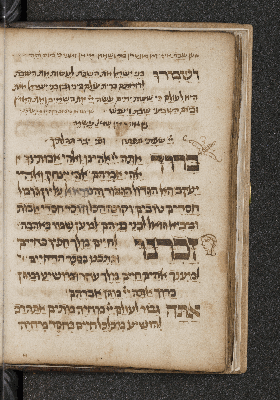 ושמרו בני ישראל את השבת לעשות את השבת
לדורותם ברית עולם ביני ובין בני ישראל אות
היא לעולם כי ששת ימים עשה יי את השמים ואת הארץ
וביום השביעי שבת וינפש
יי שפתי תפתח ופי יגיד תהלתך
ברוך אתה יי אלהינו ואלהי אבותינו
אלהי אברהם אלהי יצחק ואלהי
יעקב האל הגדול הגבור והנורא אל עליון גומל
חסדים טובים וקונה הכל וזוכר חסדי אבות
ומביא גואל לבני בניהם למען שמו באהבה
זכרנו לחיים מלך חפץ בחיים
וכתבנו בספר החיים
למענך אלהים חיים מלך עוזר ומושיע ומגן
ברוך אתה יי מגן אברהם
אתה גבור לעולם יי מחיה מתים אתה רב
להושיע מכלכל חיים בחסד מחיה